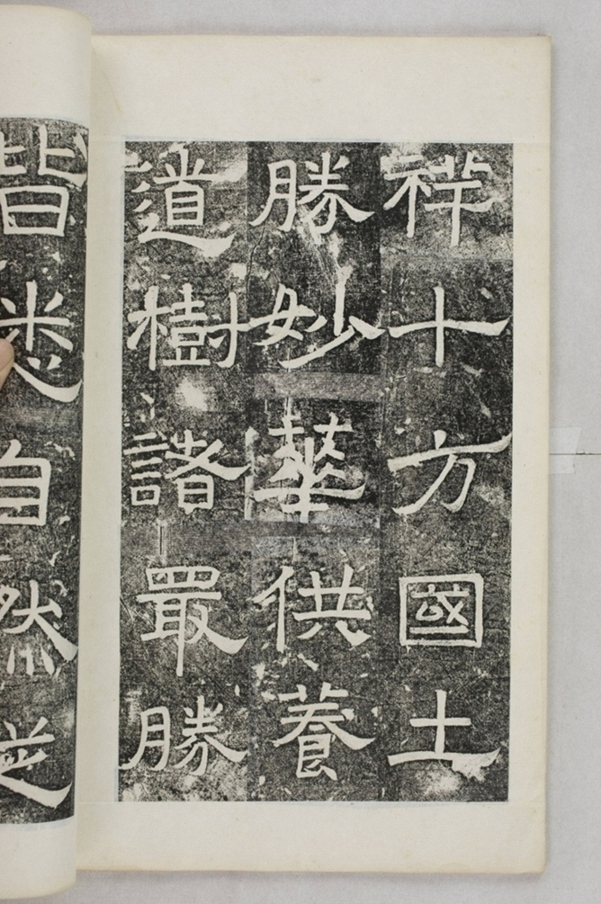 祥十方國土
勝妙華供養
道樹諸㝡勝
皆悉自然